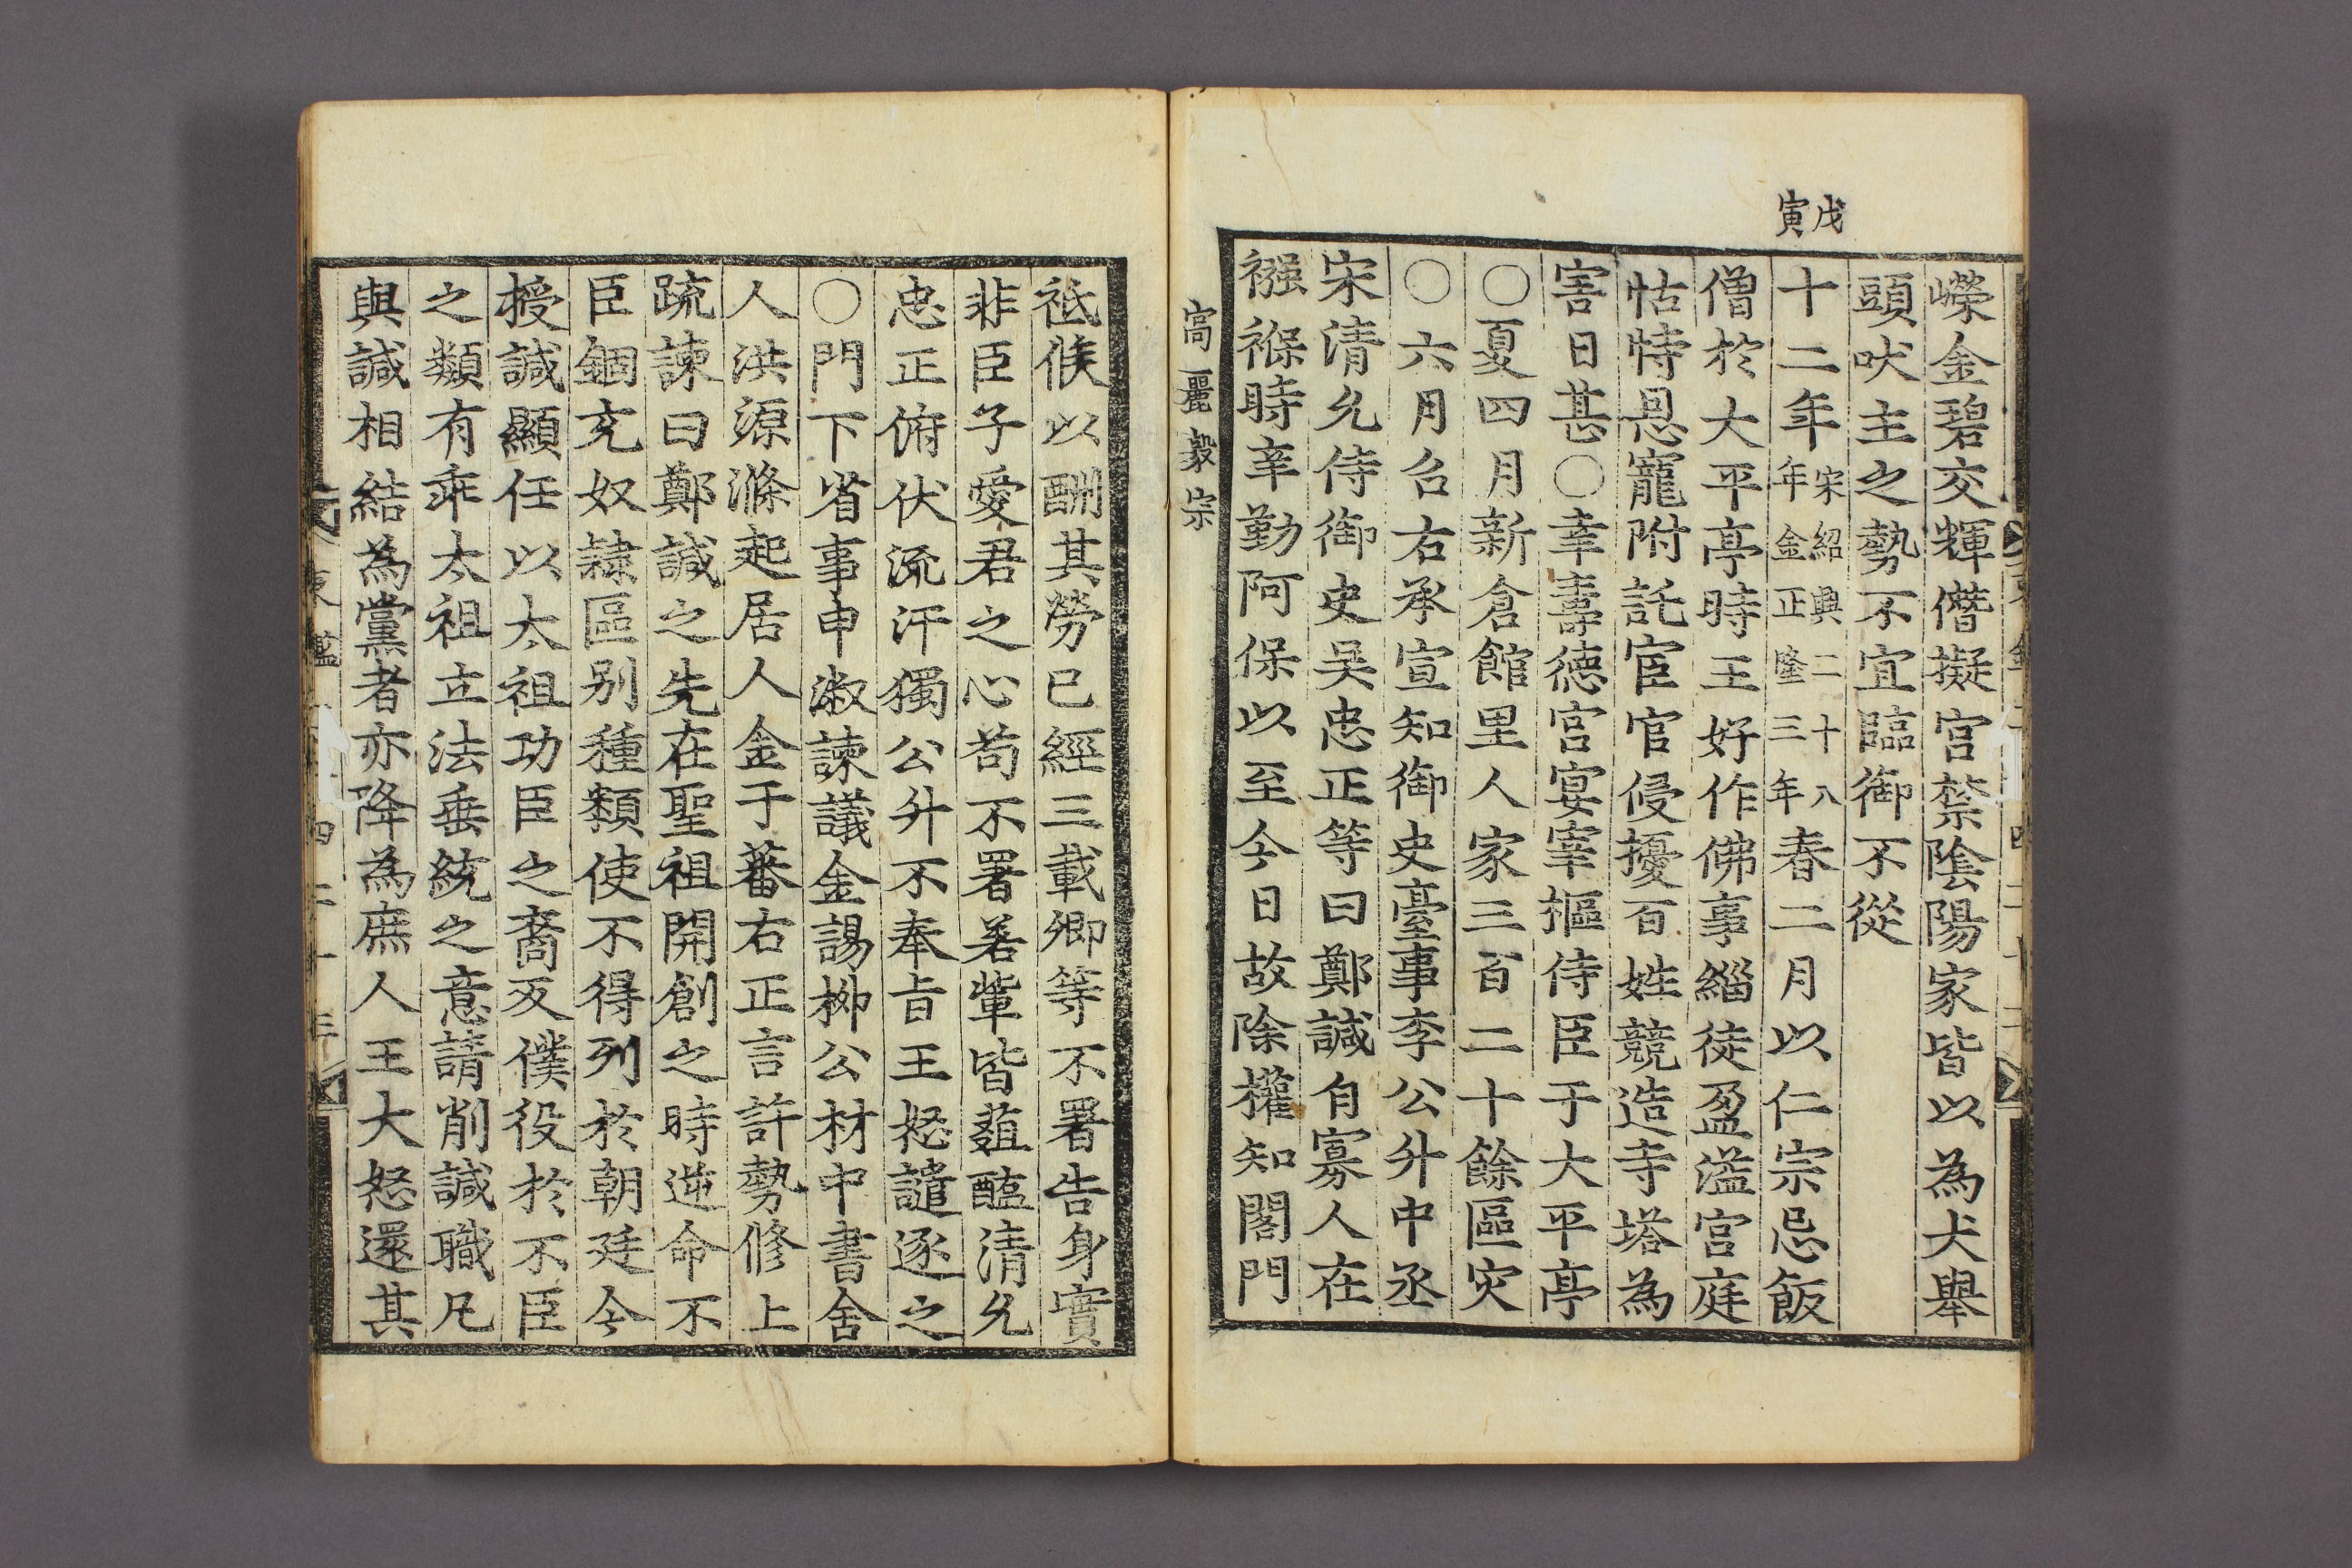 戊寅
嶸金碧交輝僭擬宮禁陰陽家皆以為犬舉
頭吠主之勢不宜臨御不從
十二年宋紹興二十八年金正隆三年春二月以仁宗忌飯
僧於大平亭時王好作佛事緇徒盈溢宮庭
怙恃恩寵附託宦官侵擾百姓競造寺塔為
害日甚○幸壽德宮宴宰樞侍臣于大平亭
○夏四月新倉館里人家三百二十餘區灾
○六月召右承宣知御史臺事李公升中丞
宋清允侍御史吴忠正等曰鄭諴自寡人在
襁褓時辛勤阿保以至今日故除權知閣門
高麗毅宗
祗候以酬其勞已經三載卿等不署告身實
非臣子愛君之心苟不署若輩皆葅醢清允
忠正俯伏流汗獨公升不奉旨王怒譴逐之
○門下省事申淑諫議金諹柳公材中書舍
人洪源滌起居人金于蕃右正言許勢修上
疏諫曰鄭諴之先在聖祖開創之時逆命不
臣錮充奴隷區别種類使不得列於朝廷今
授諴顯任以太祖功臣之裔反僕役於不臣
之類有乖太祖立法垂統之意請削諴職凡
與諴相結為黨者亦降為庶人王大怒還其
四二十三